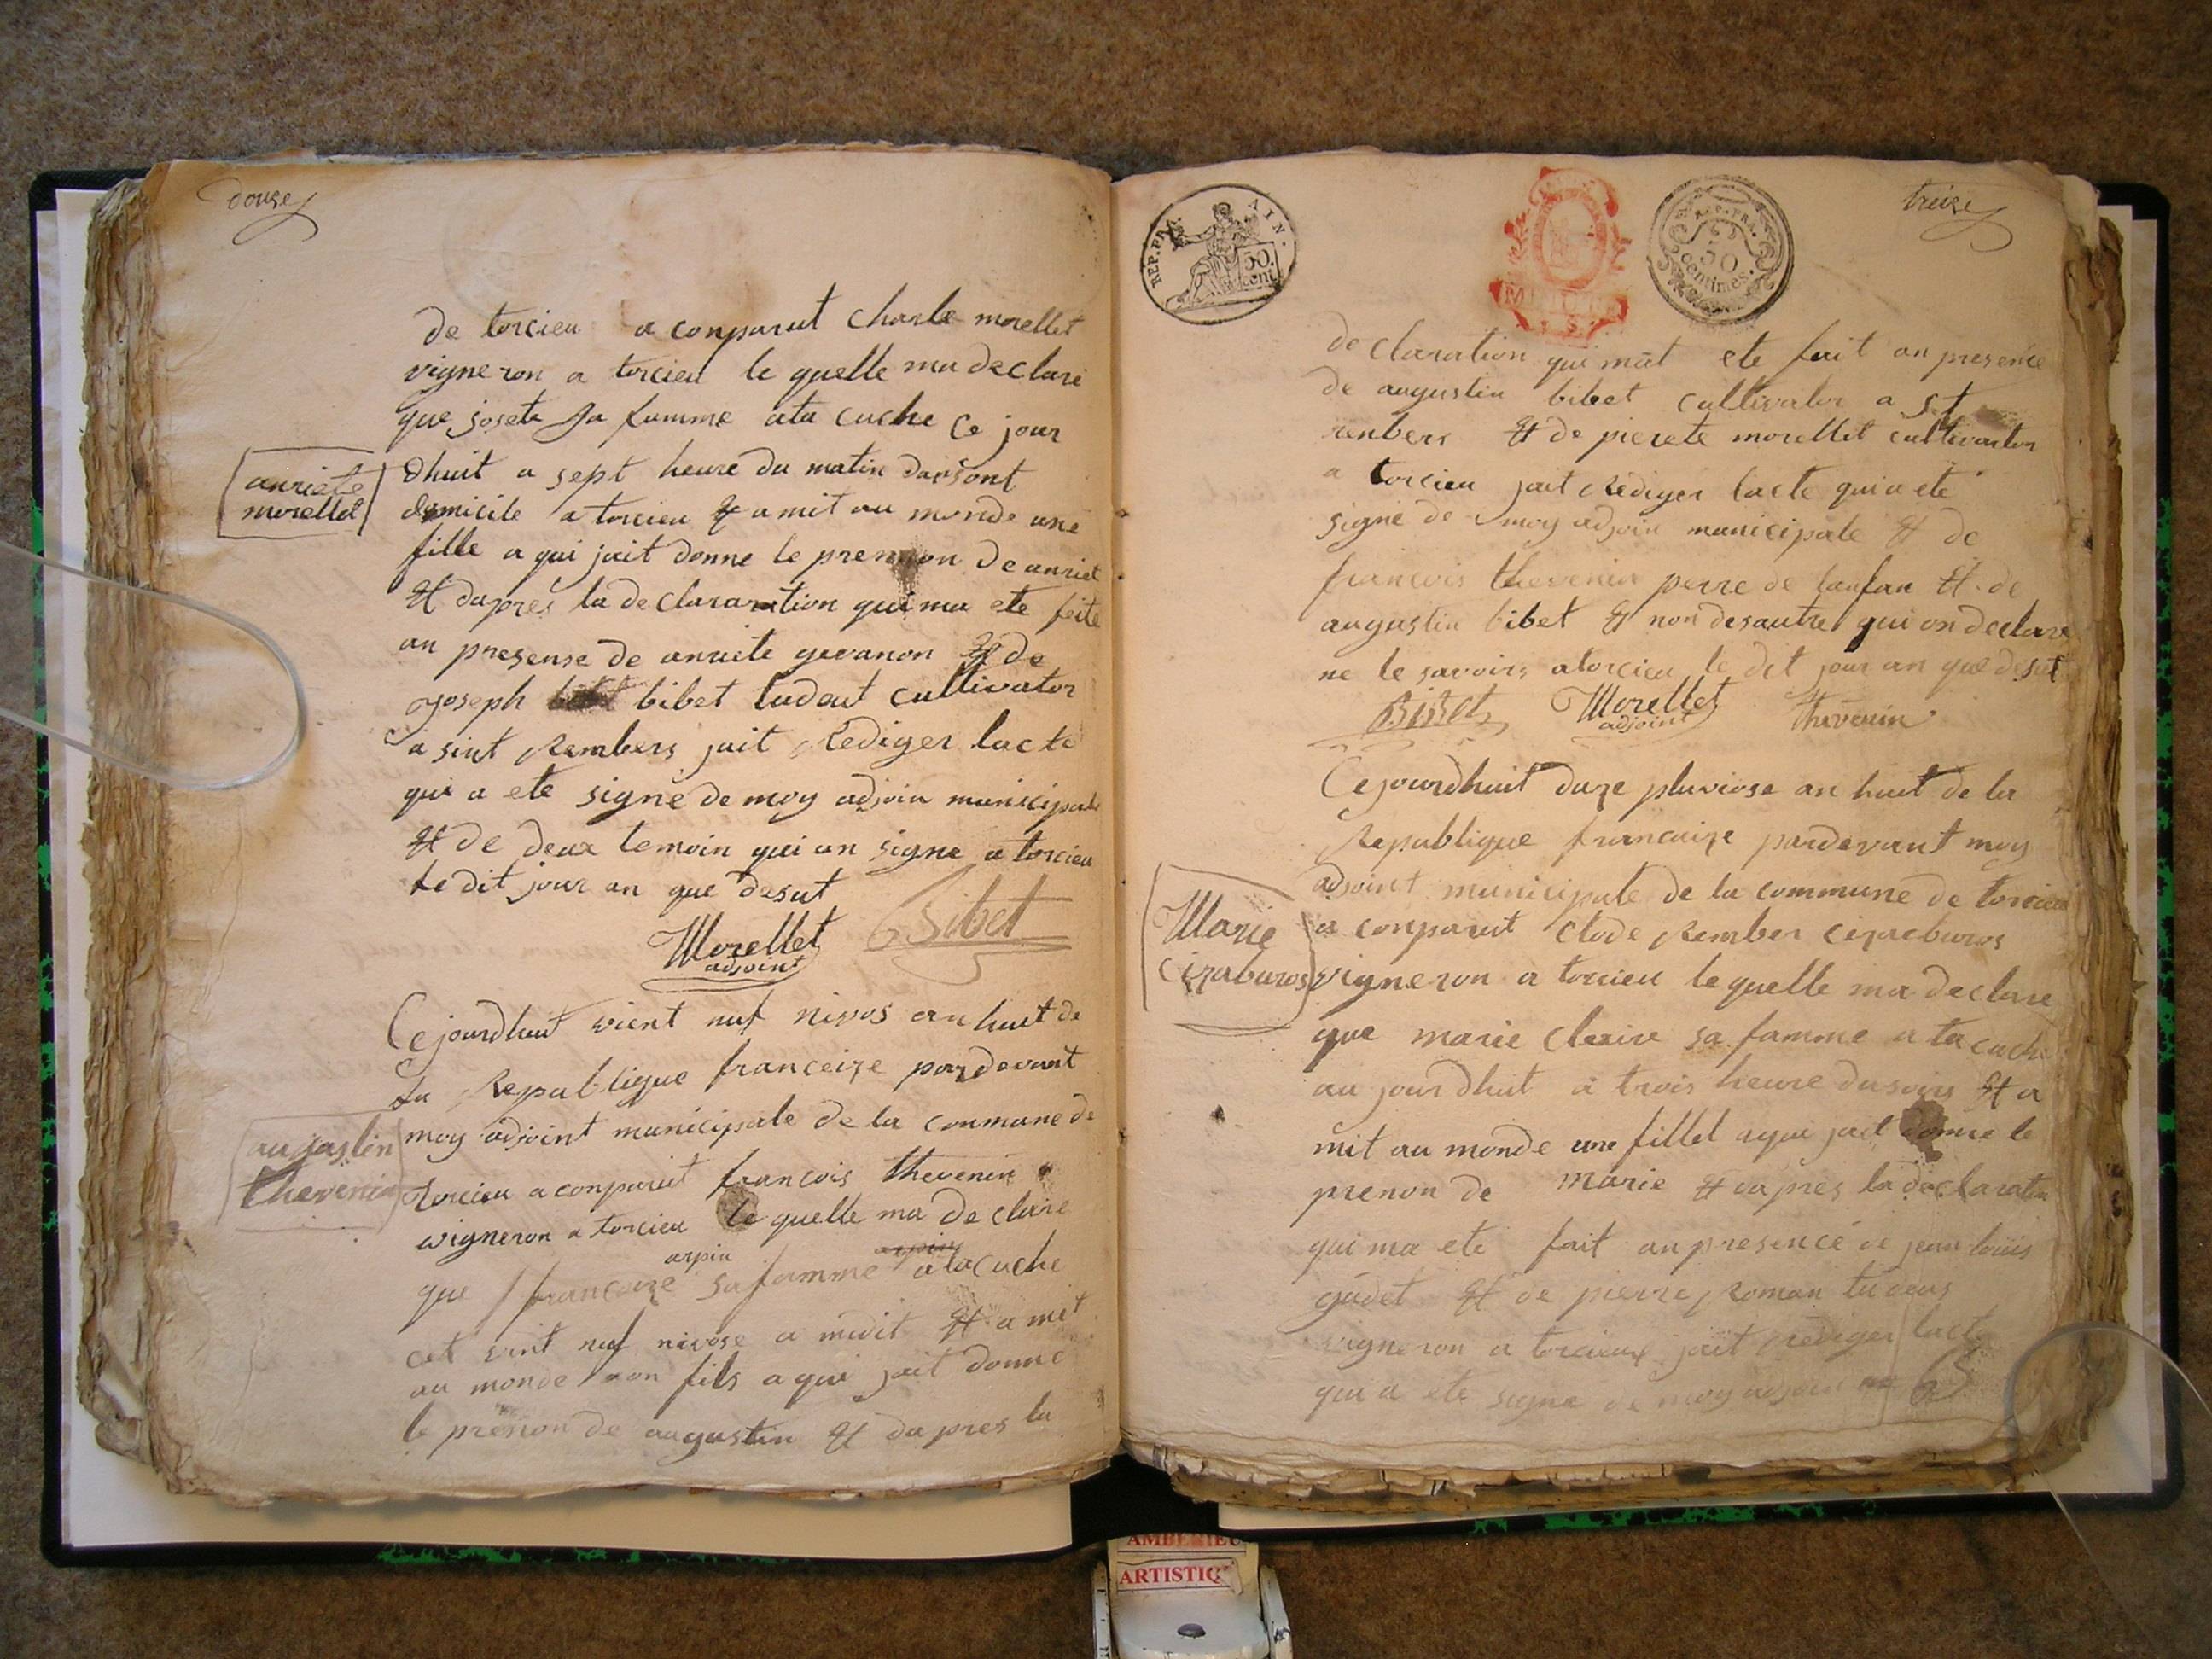 douze
de torcieu a conparut charle morellet
vigneron a torcieu le quelle ma declare
que joseta sa famme ata cuche Ce jour
dhuit a sept heure du matin dansont
domicile a torcieu & a mit au monde une
fille a qui jait donne le prennon de anriet
& dapres la declararation qui ma ete feite
an presense de anriete gevanon & de
joseph bibet tudeut cultivator
a sint Rembers jait Rediger lacte
qui a ete signe de moy adjoin municipale
& de deux temoin qui an signe a torcieu
le dit jour an que desut
Morellet
adjoint
Bibet
anriete
morellet
Cejourdhuit vient nuf nivos an huit de
La Republigue franceize pardevant
moy adjoint municipale de la commune de
torcieu a conparut francois thevenin
wigneron a torcieu le quelle ma declare
arpin arpin
que francoize sa famme a la cuche
cet vint nuf nivose a midit & a mit
au monde non fils a qui jait donne
le prenon de augustin & dapres la
augastin
thevenin
treize
REP. FRA. AIN.
50.
cent
REP. FRA.
50
centimes.
declaration qui mat ete fait an presence
de augustin bibet cultivator a st
renbers & de pierete morellet cultivator
a torcieu jait Rediger lacte qui a ete
signe de moy adjoin municipale & de
francois thevenin perre de lanfan & de
augustin bibet & non desautre qui on declare
ne le savoirs a torcieu le dit jour an que desut
BiBet
Morellet
adjoint
thevenin
Cejourdhuit duze pluviose an huit de la
Republique francaize pardevant moy
adjoint municipale de la commune de torcieu
a conparut Clode Rember cizaeburos
vigneron a torcieu le quelle ma declare
que marie Claire sa famme a ta cuche
au jourdhuit a trois heure dusoirs & a
mit au monde une fillet aqui jait donne le
prenon de marie & dapres la declaration
qui ma ete fait an presence de jean louis
gudet & de pierre Roman tudeus
vigneron a torcieux jait rediger lacte
qui a ete signe de moy adjoin
65
Marie
Cizaburos
AMBERIEU
ARTISTIQ